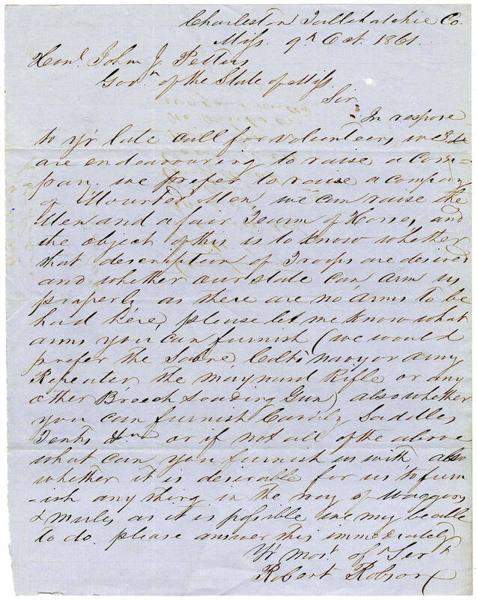 Charleston Tallahatchie Co.
Miss. 9th Oct. 1861.
Honl. John J. Pettus
Govn of the State of Miss.
Sir,
In respose
to yr late call for volunteers, we
are endeavouring to raise a Com-
pany. we prefer to raise a company
of Mounted Men, we can raise the
Men and a fair Team of Horses, and
the object of this is to know whether
that description of Troops are desired
and whether our state can arm us
properly as there are no arms to be
had here, please let me know what
arms you can furnish (we would
prefer the Sabre, Colt's navy or any
Repeater the Maynard Rifle or any
other Breech Loading Gun) also whether
you can furnish Cavalry Saddles
Tents &c or if not all of the above
what can you furnish us with, also
whether it is desirable for us to furn-
-ish any thing in the way of Waggons
& mules, as it is possible we may be able
to do. please answer this immediately
Yr most obt Servt
Robert Robson